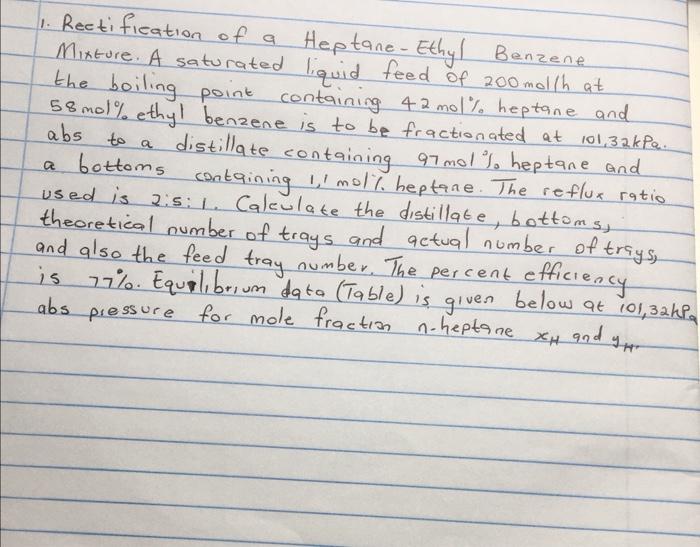 1. Rectification of a Heptane-Ethyl Benzene
Mixture. A saturated liquid feed of 200 mol/h at
the boiling point containing 42 mol% heptane and
58 mol% ethyl benzene is to be fractionated at 101,32 kPa.
abs to a distillate containing 97 mol % heptane and
a bottoms containing 1,1 mol% heptane. The reflux ratio
used is 2:5:1. Calculate the distillate, bottoms,
theoretical number of trays and actual number of trays,
and also the feed tray number. The percent efficiency
is 77%. Equilibrium data (Table) is given below at 101,32kPa
abs pressure for mole fraction n-heptane xH and yH.